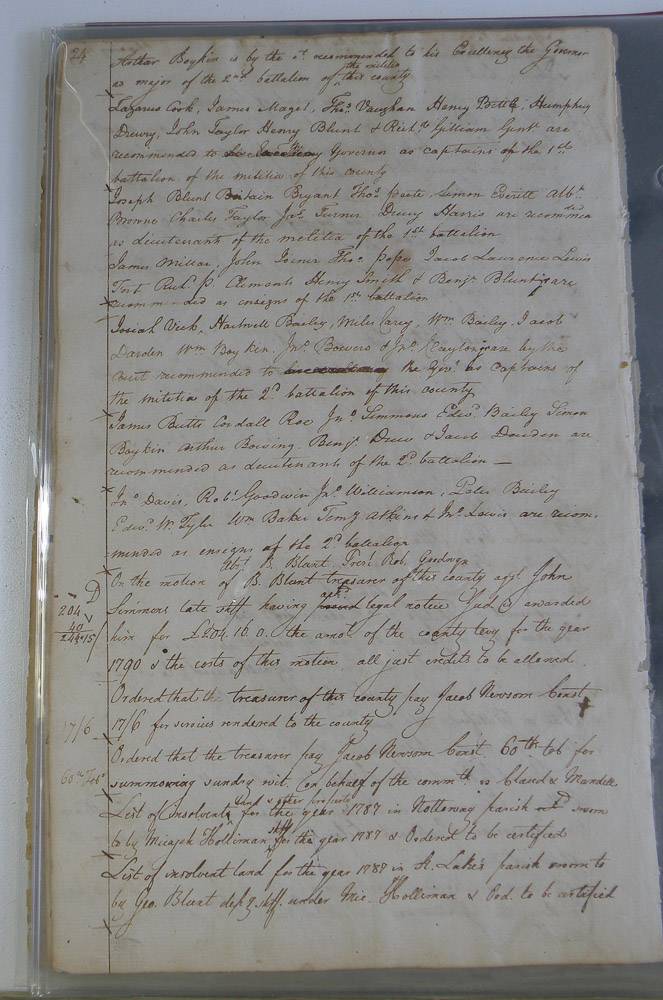 24
Arthur Boykin is by the Ct. recommended to his Excellency the Governor
as major of the 2nd. battalion of the militia this county
Lazarus Cook, James Magel, Thos. Vaughan Henry Humphrey
Drewry, John Taylor Henry Blunt & Richd. Gilliam Gent. are
recommended to Governor as captains of the 1st.
battalion of the militia of this county
Joseph Blunt Britain Bryant Thos. Simon Everitt Albt.
Browne Charles Taylor Jno. Turner Drewy Harris are recommended
as lieutenants of the melitia of the 1st battalion
James Millar, John Joiner Thos. Pope, Jacob Lawrence Lewis
Fort Richd. P. Clements Henry Smith & Benja. Blunt are
recommended as ensigns of the 1st. battalion
Josiah Vick, Hartwell Bailey, Miles Carey, Wm. Bailey, Jacob
Darden Wm Boyken. Jno. Bowers & Jno. Clayton are by the
court recommended to the Govr. as Captains of
the militia of the 2d. battalion of this county
James Butts Cordall Roe Jno. Simmons Edwd. Bailey Simon
Boykin Arthur Bowing Benja. Drew & Jacob Darden are
recommended as lieutenants of the 2d. battalion —
Jno. Davis, Robt. Goodwin Jno. Williamson, Peter Bailey
Edwd. W. Tyler Wm Baker Temy. Atkins & Jno. Lewis are recom.
mended as ensigns of the 2d. battalion
B. Blunt, Tresr. Rob. Goodwyn
On the motion of B. Blunt treasurer of this county agt. John
204
40
244.15
Simmons late shff having legal notice Jud. is awarded
him for £204.16.0. the amot. of the county levy for the year
1790 & the costs of this motion. all just credits to be allowed.
Ordered that the treasurer of this county pay Jacob Newsom Const.
17/6
17/6 for services rendered to the county
Ordered that the treasurer pay Jacob Newsom Const. 60 lb. tob. for
60 lb. Tobo.
summoning sundry wit. on behalf of the commth. vs Claud & Mandell
List of Insolvents land & other property for the year 1787 in Nottoway parish sworn
to by Micajah Holliman shff for the year 1787 & Ordered to be certified
List of insolvent land for the year 1787 in St. Luke's parish sworn to
by Geo. Blunt depy. shff. under Mic. Holliman & Ord. to be certified